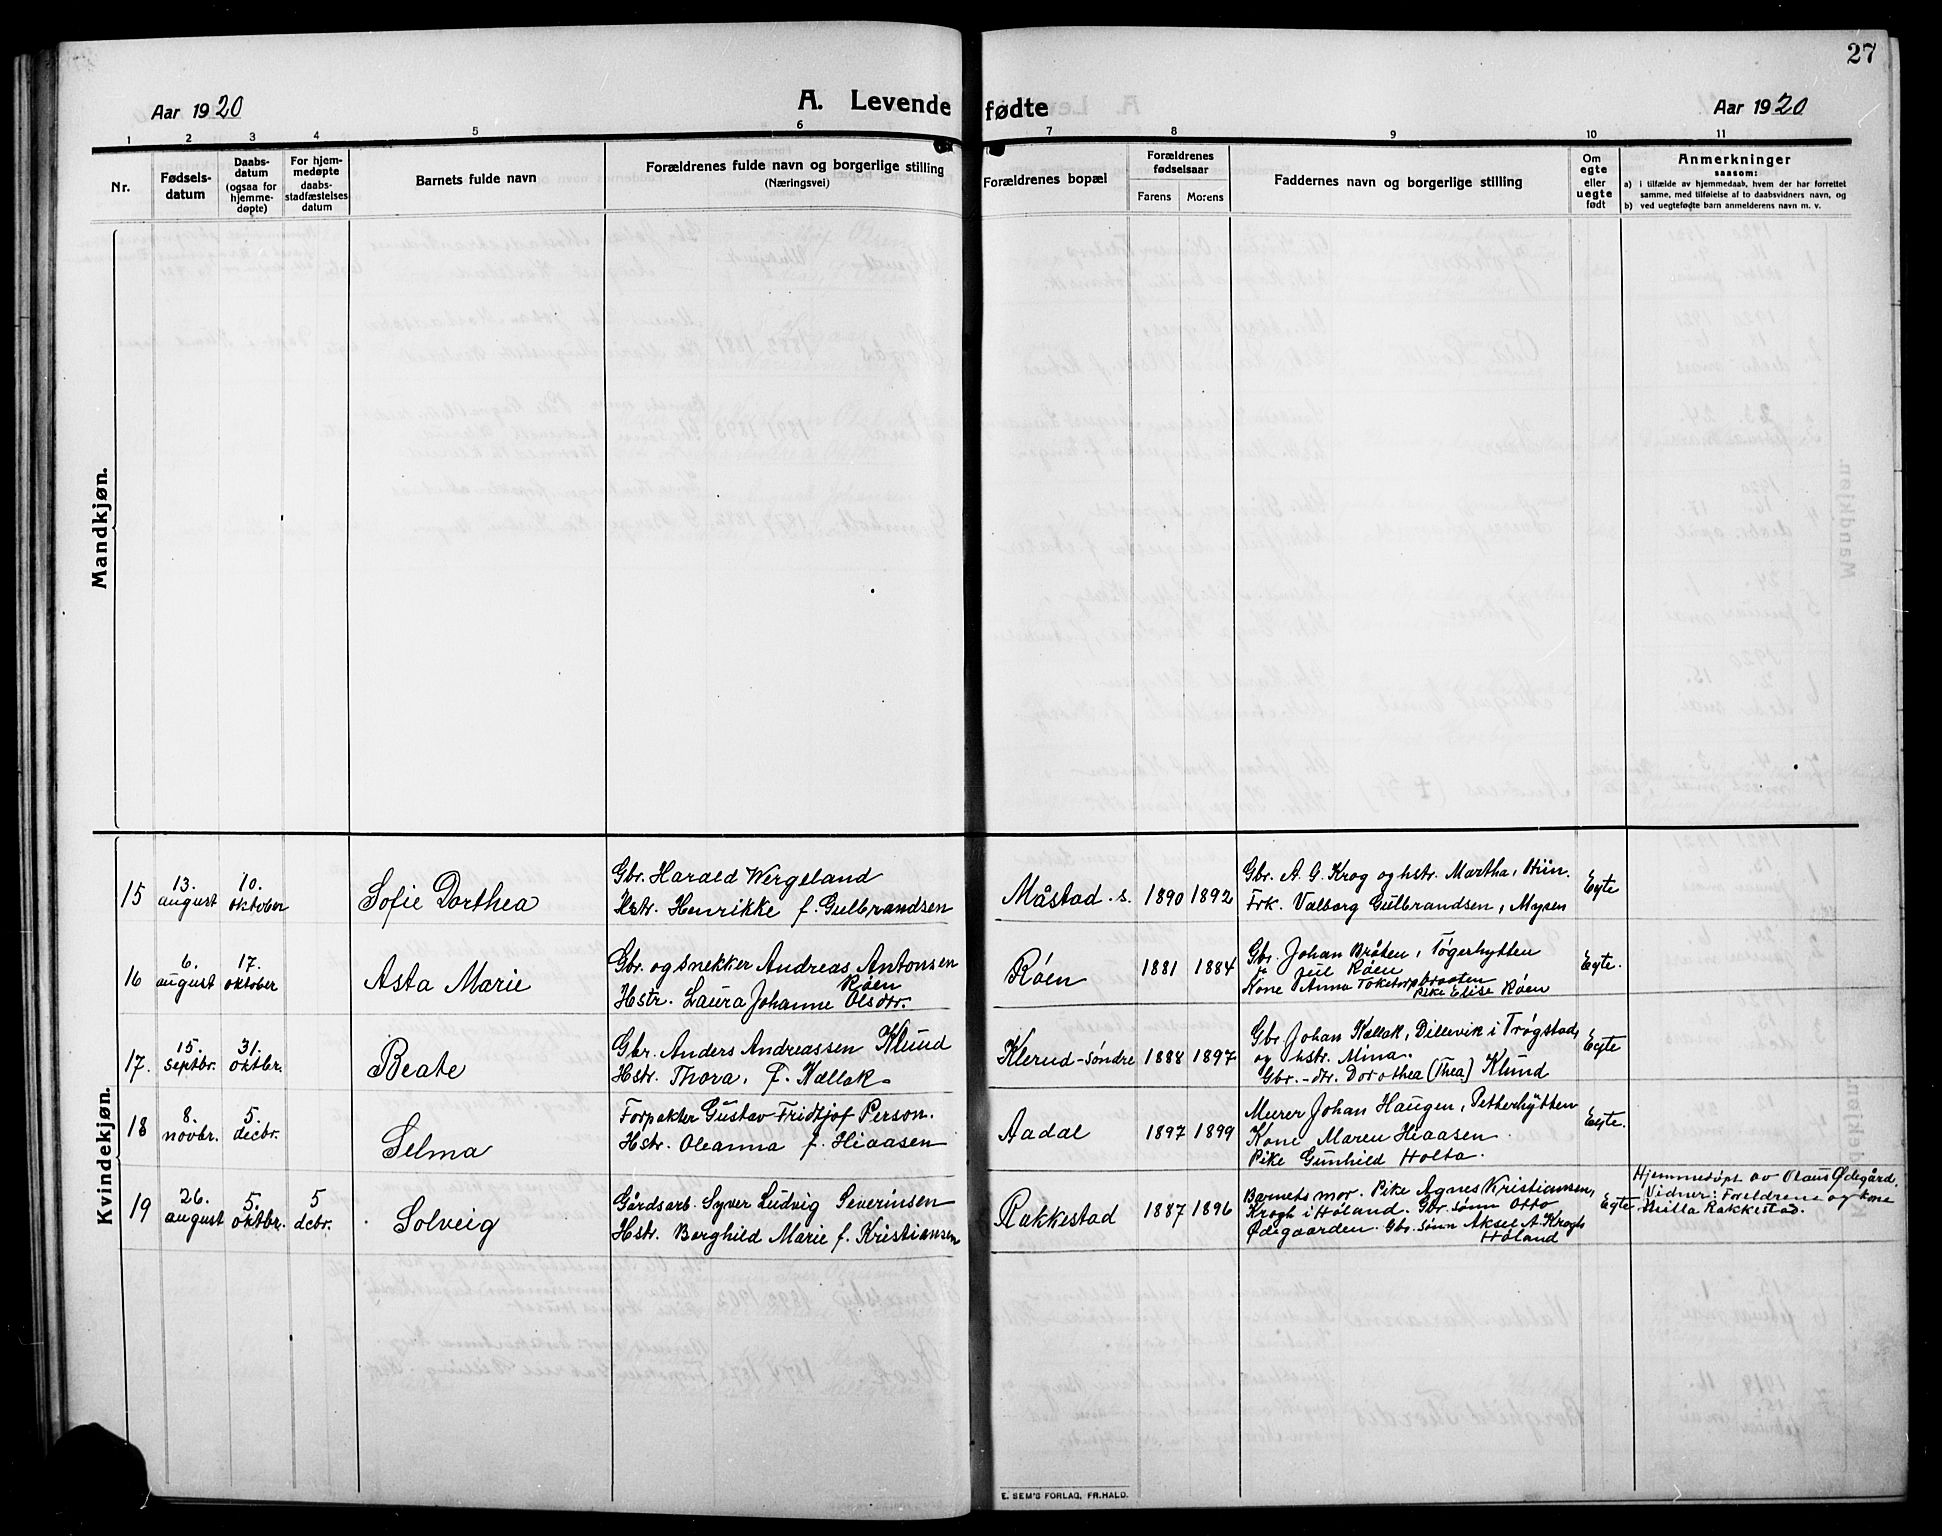 27
Aar 1920
A. Levende fødte
Aar 1920
1 2 3 4 5 6 7 8 9 10 11
Nr.
Fødsels-
datum
Daabs-
datum
(ogsaa for
hjemme-
døpte)
For hjem-
medøpte
daabs-
stadfæstelses
datum
Barnets fulde navn
Forældrenes fulde navn og borgerlige stilling
(Næringsvei)
Forældrenes bopæl
Forældrenes
fødselsaar
Farens Morens
Faddernes navn og borgerlige stilling
Om
egte
eller
uegte
født
Anmerkninger
saasom:
a) i tilfælde av hjemmedaab, hvem der har forrettet
samme, med tilføielse af to daabsvidners navn, og
b) ved uegtefødte barn anmelderens navn m. v.
Mandkjøn.
Kvindekjøn.
15
13.
august
10.
oktober
Sofie Dorthea
Gbr. Harald Wergeland
Hstr. Henrikke f. Gulbrandsen
Måstad s.
1890 1892
Gbr. A. G. Krog og hstr. Martha, Hiin.
Frk. Valborg Gulbrandsen, Mysen
Egte
16
6.
august
17.
oktober
Asta Marie
Gbr. og snekker Andreas Antonsen
Røen
Hstr. Laura Johanne Olsdtr.
Røen
1881 1884
Gbr. Johan Bråten, Tøgerhytten
Røen
Kone Anna Toketorpbraaten
Pike Elise Røen
Egte.
17.
15.
septbr.
31.
oktbr.
Beate
Gbr. Anders Andreassen Klund
Hstr. Thora, f. Kallak.
Klerud-søndre
1888 1897
Gbr. Johan Kallak, Dillevik i Trøgstad,
og hstr. Mina.
Gbr.-dtr. Dorothea (Thea) Klund
Egte
18
8.
novbr.
5.
decbr.
Selma
Forpakter Gustav Fridtjof Person.
Hstr. Oleanna f. Hiaasen
Aadal
1897 1899
Murer Johan Haugen, Petterhytten
Kone Maren Hiaasen.
Pike Gunhild Holta.
Egte.
19
26.
august
5.
oktbr.
5
dcbr.
Solveig
Gårdsarb. Syver Ludvig Severinsen
Hstr. Borghild Marie f. Kristiansen
Rakkestad
1887 1896
Barnets mor. Pike Agnes Kristiansen,
Krogh i Høland. Gbr. sønn Otto
Ødegaarden. Gbr. sønn Aksel A. Krogh
Høland
Egte
Hjemmedøpt av Olaus Ødegård.
Vidner: Foreldrene og kone
Rakkestad.
E. SEM'S FORLAG, FR.HALD.